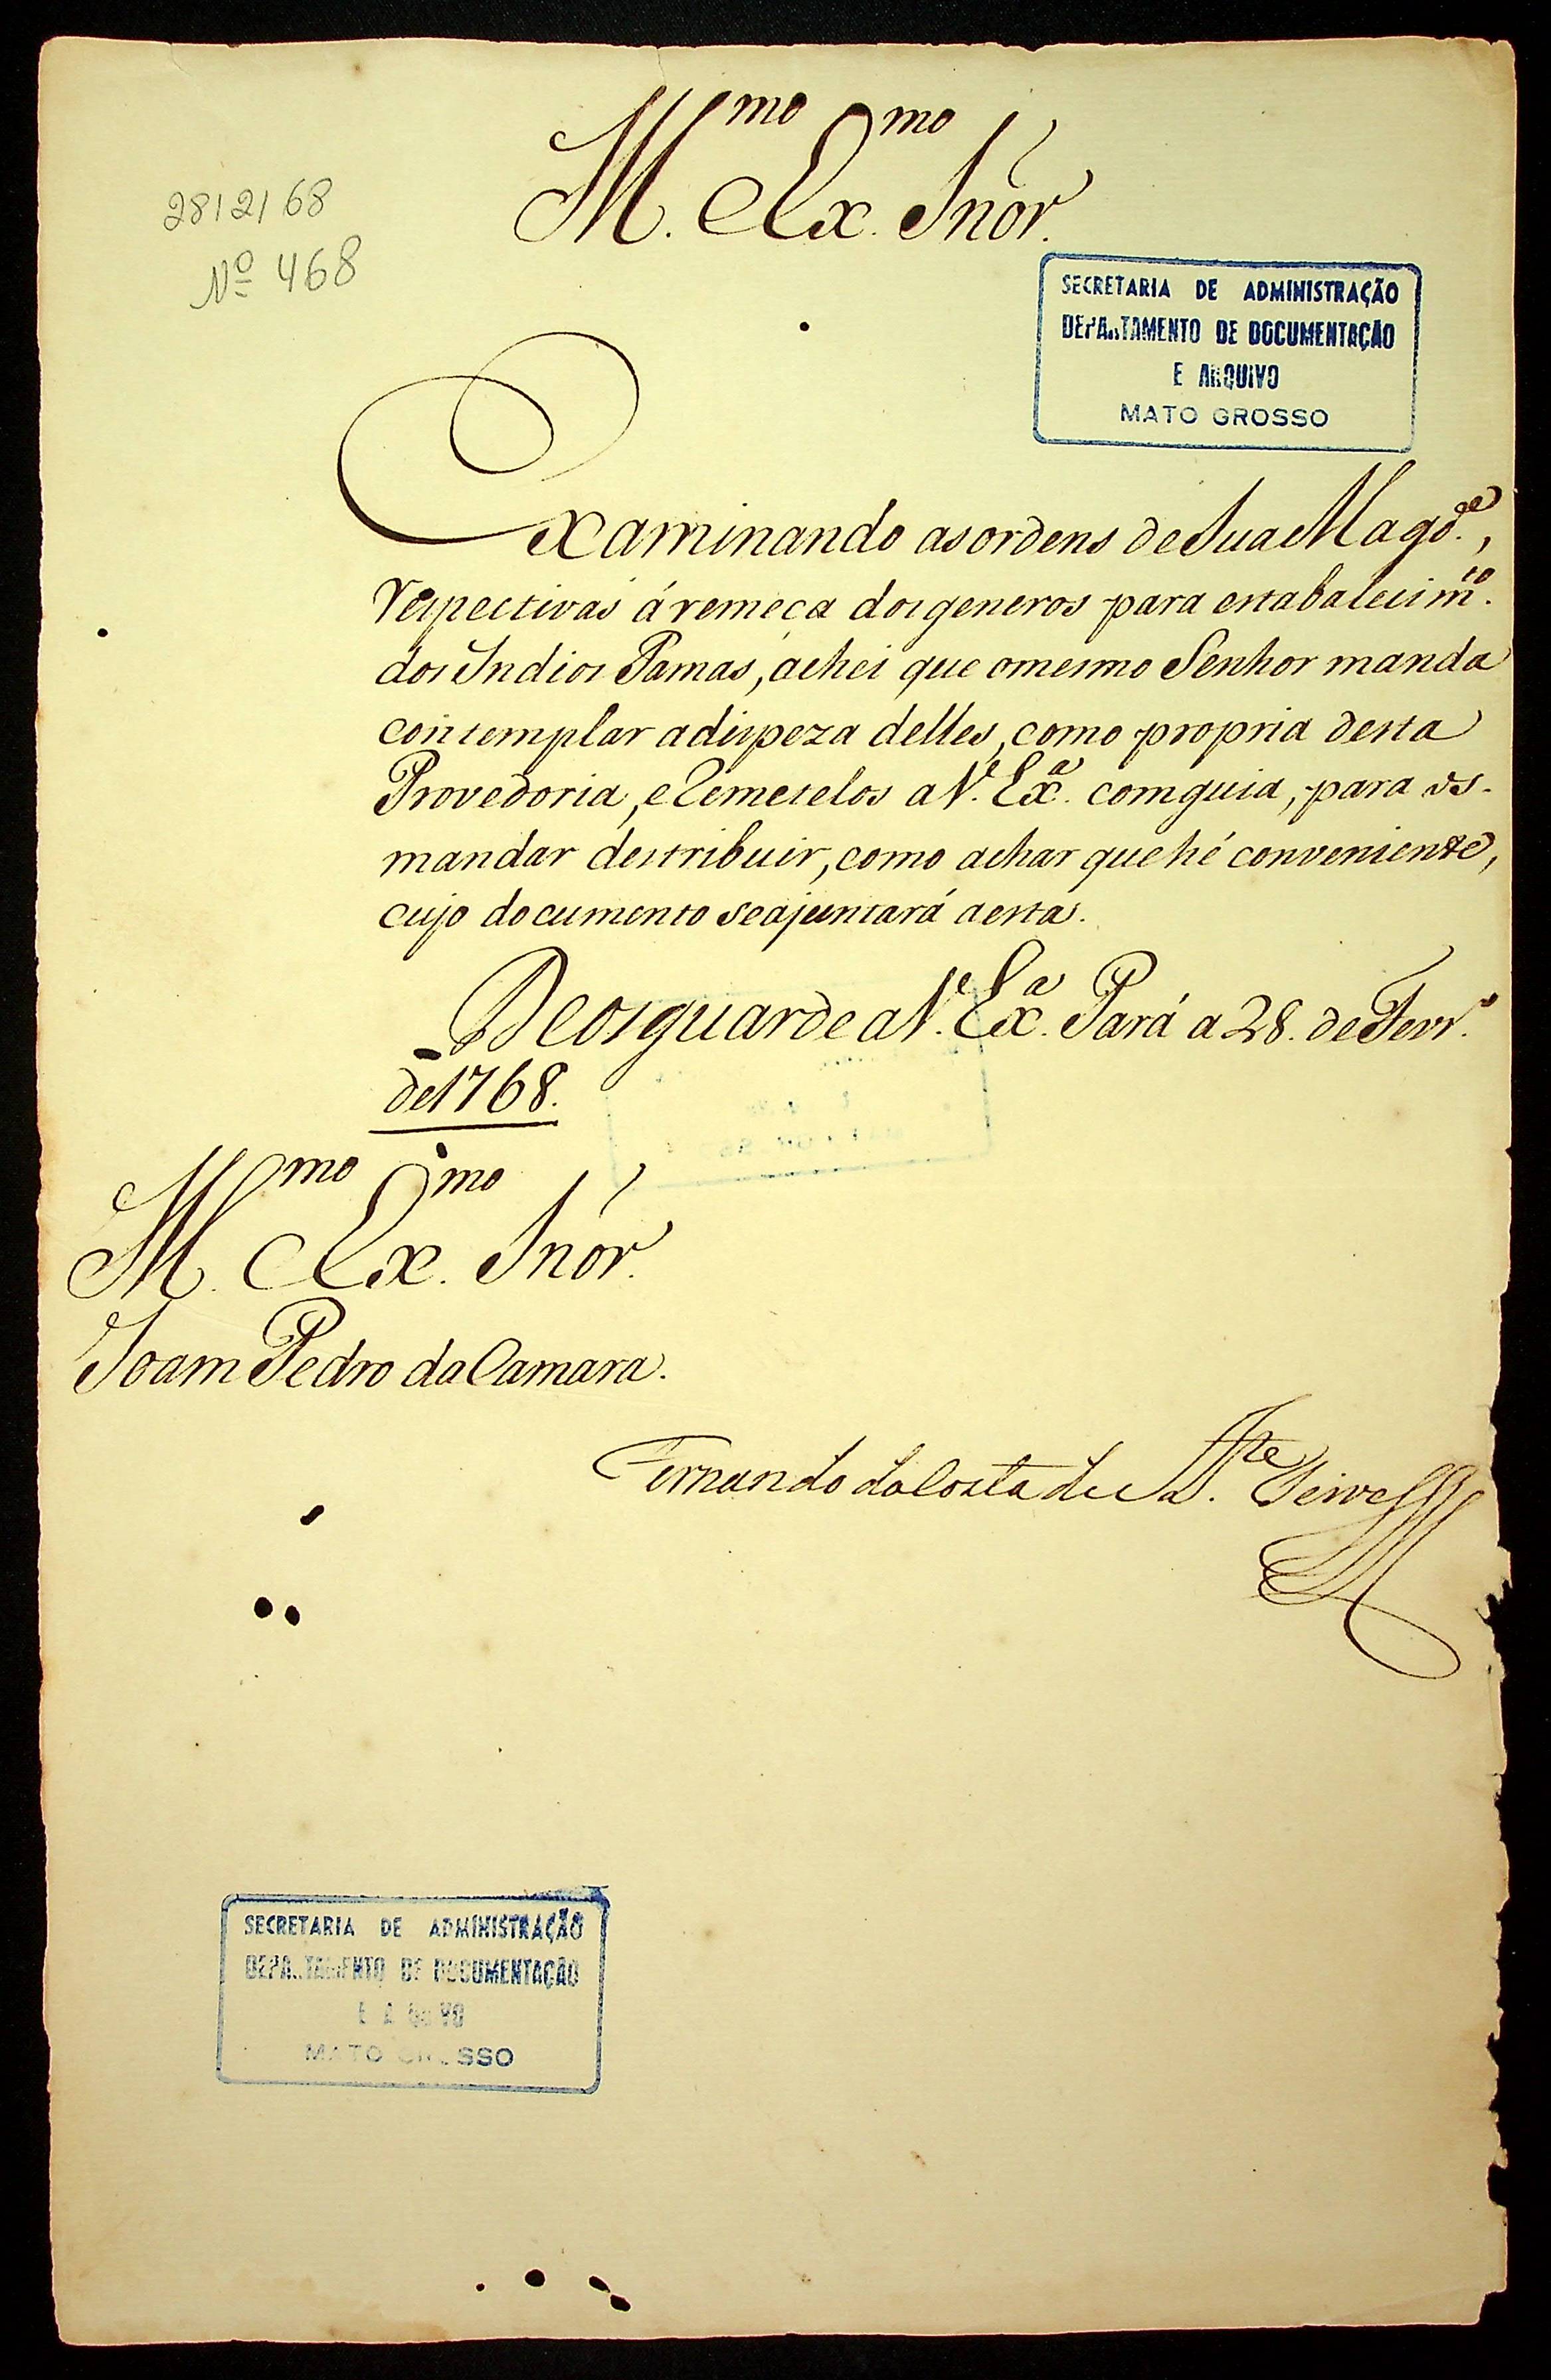 Ill.mo Ex.mo Snor.
28 | 2 | 68
Nº 468
SECRETARIA DE ADMINISTRAÇÃO
DEPARTAMENTO DE DOCUMENTAÇÃO
E ARQUIVO
MATO GROSSO
Examinando as ordens de Sua Magd.e,
respectivas á remeça dos generos para estabalecim.to
dos Indios Pamas, achei que o mesmo Senhor manda
contemplar a dispeza delles, como propria desta
Provedoria, e Remetelos a V. Ex.a com guia, para os-
mandar destribuir, como achar que hé conveniente,
cujo documento se ajuntará a esta.
Deos guarde a V. Ex.a Pará a 28. de Fevr.o
de 1768.
Ill.mo Ex.mo Snor.
Joam Pedro da Camara.
Fernando da Costa de Ataide Teive
SECRETARIA DE ADMINISTRAÇÃO
DEPARTAMENTO DE DOCUMENTAÇÃO
E ARQUIVO
MATO GROSSO